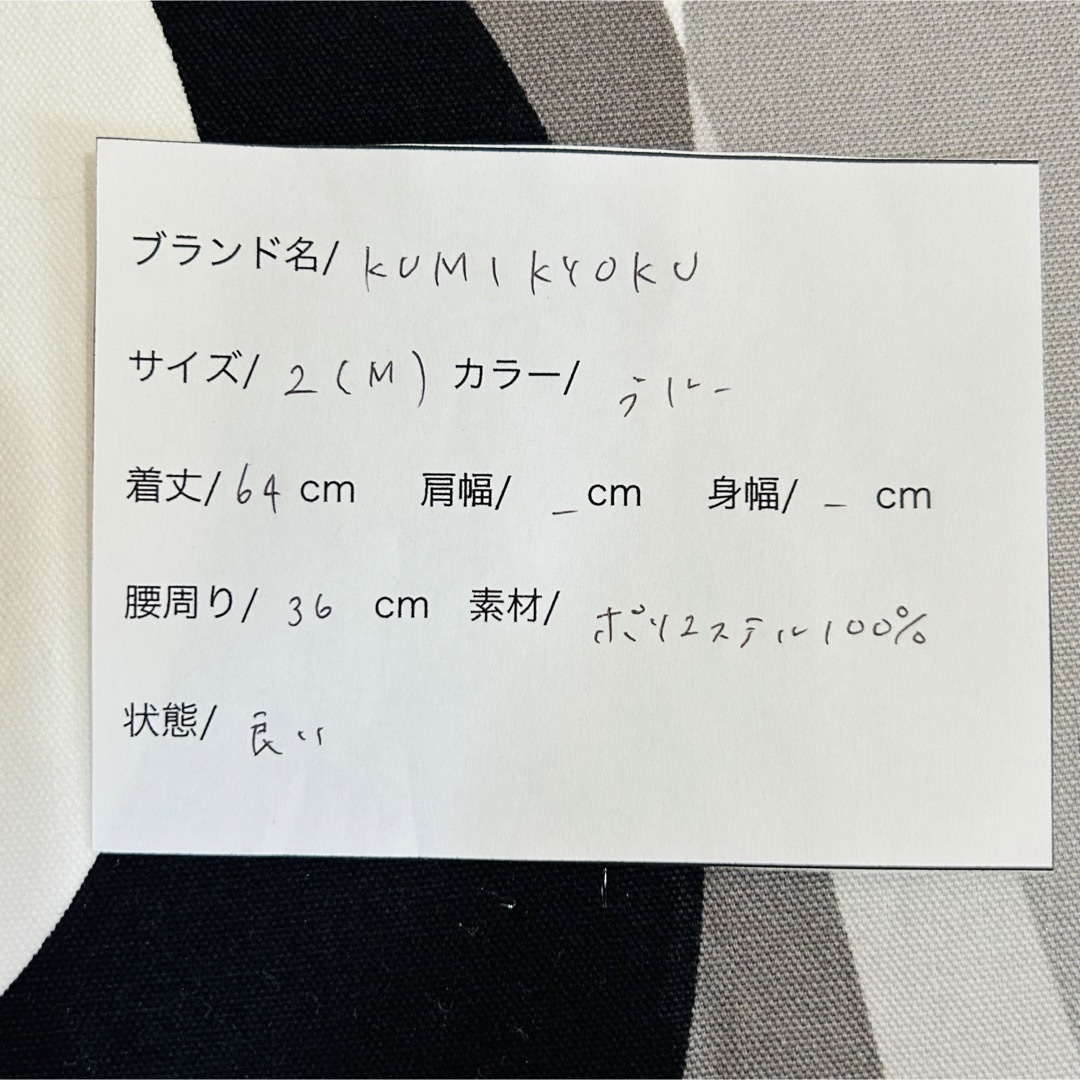 ブランド名/ KUMIKYOKU
サイズ/ 2(M) カラー/
着丈/64 cm 肩幅/ _cm 身幅/ - cm
腰周り/ 36 cm 素材/ ポリエステル100%
状態/ 良い